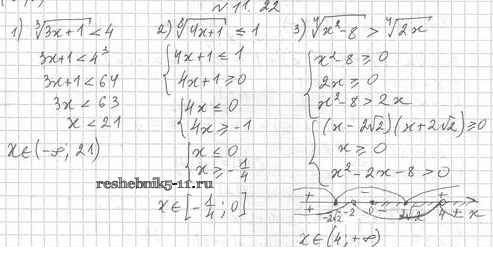 № 11. 22
1) ∛(3x+1) < 4
3x+1 < 4³
3x+1 < 64
3x < 63
x < 21
x ∈ (-∞; 21)
2) ⁶√(4x+1) ≤ 1
{ 4x+1 ≤ 1
4x+1 ≥ 0
{ 4x ≤ 0
4x ≥ -1
{ x ≤ 0
x ≥ -1/4
x ∈ [-1/4; 0]
3) ⁴√(x²-8) > ⁴√(2x)
{ x²-8 ≥ 0
2x ≥ 0
x²-8 > 2x
{ (x-2√2)(x+2√2) ≥ 0
x ≥ 0
x²-2x-8 > 0
+ - +
+ -2√2 -2 0 - 2√2 4 + x
x ∈ (4; +∞)
reshebnik5-11.ru